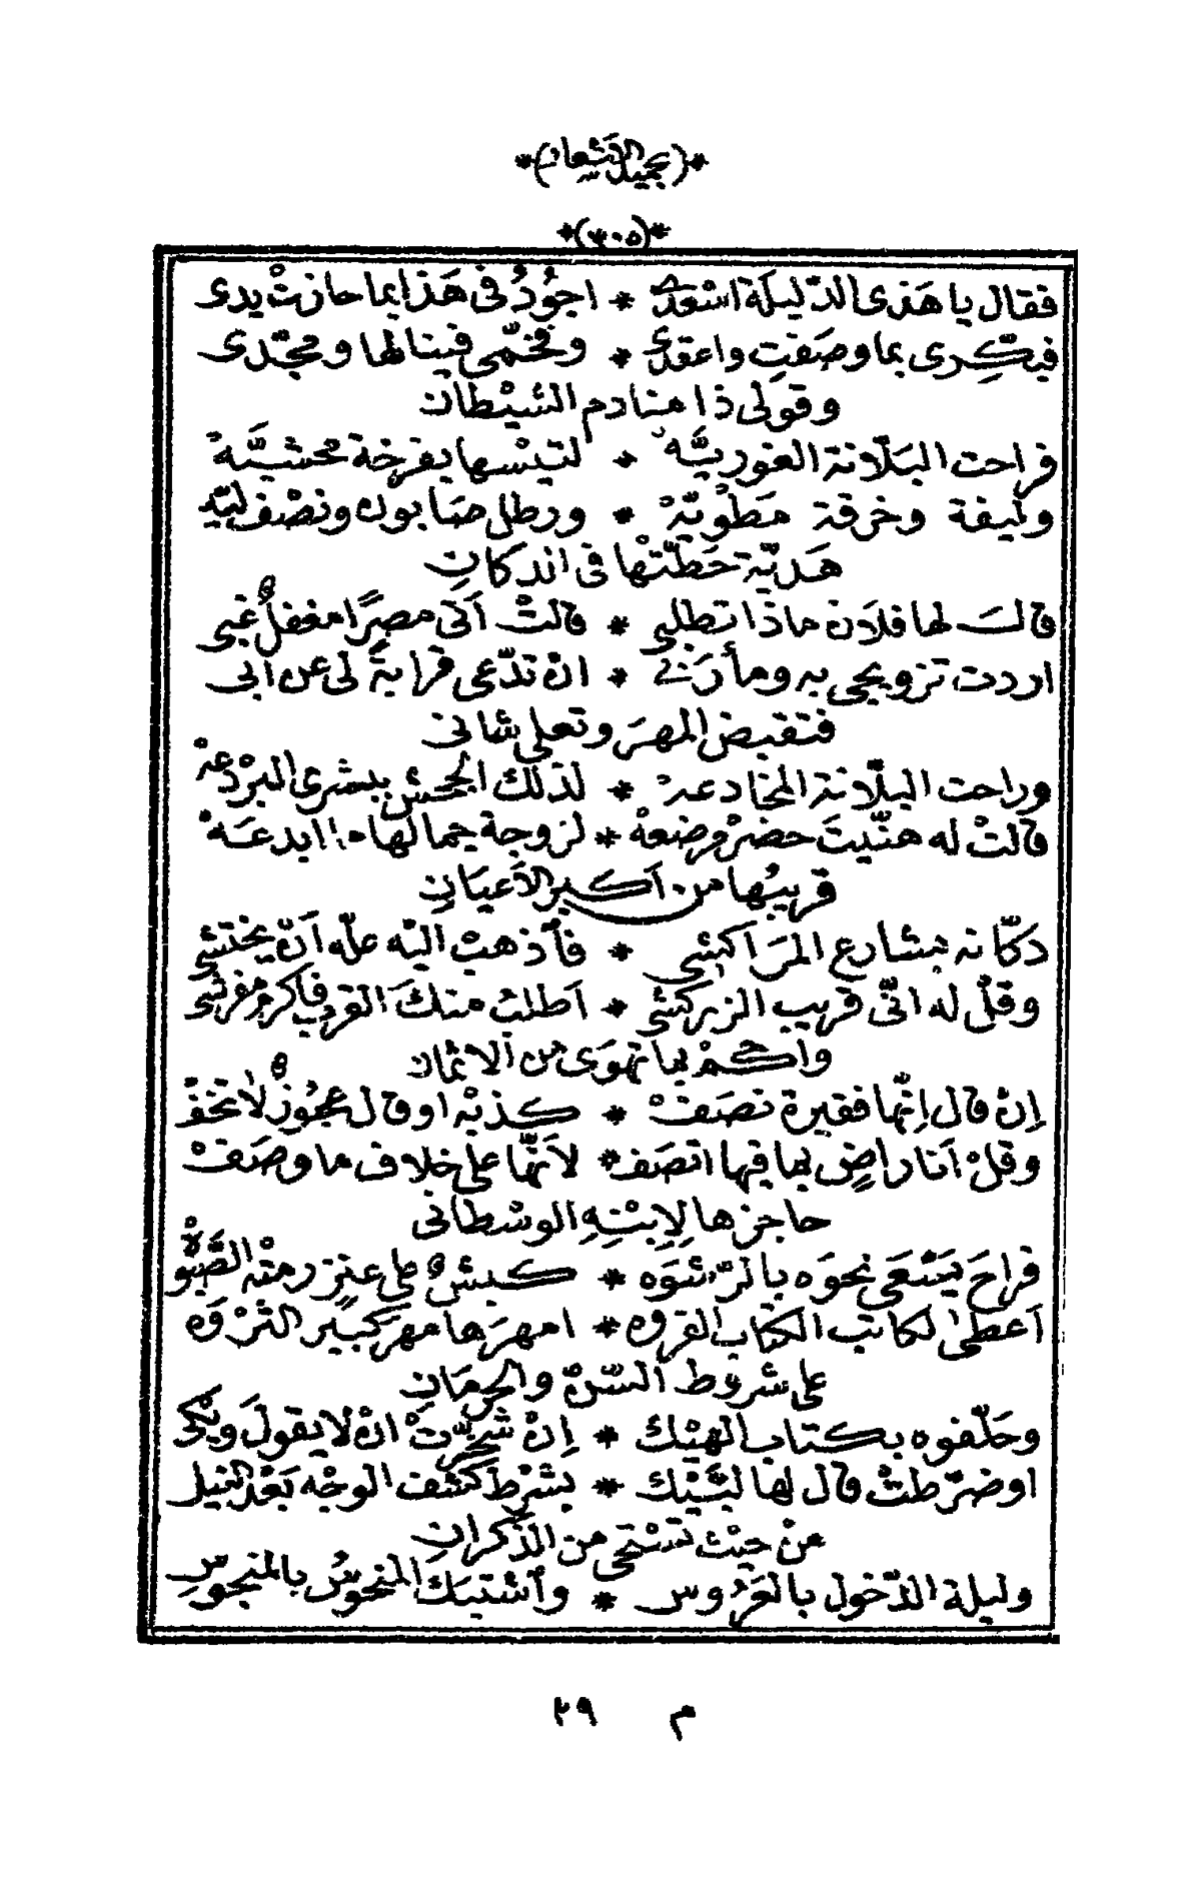 *(بجميل الاشعار)*
*(٣٠٥)*
فقال يا هذى الدّليلة اسْعدِى * اجُودُ فى هَذا بما حازتْ يدى
فيكِرى بما وصَفتِ واعقدى * وفخّمى فينا لها ومجّدى
وقولى ذا منادم الشيْطان
فراحت البَلّانة الغوريَّه * لتيسها بفرخة محشيَّهْ
وليفة وخرقة مَطْويّهْ * ورطل صَابون ونصْف ليّه
هَديّة حَطّتْها فى الدكانِ
قالت لها فلَان ماذا تطلبى * قالتْ اَتى مصرًا مغفلٌ غبى
اردت تزويجى به ومأرَبى * انْ تدّعى قرابةً لى عن ابى
فتقبض المهرَ وتعلى شانى
وراحت البلّانة المخادعهْ * لذلك الجحش ببشرى البرْدعهْ
قالتْ له هنّيتَ حضرْ وضعهْ * لزوجة جمالها ما ابدعَهْ
قريبُها من اَكبر الاَعيَانِ
دكّانه بشارع المرَاكشى * فاَذهبْ اليْه علّه اَنّ يختشى
وقلْ له انّى قريب الزركشى * اَطلبُ منكَ القرب فاكرمْ مفرشى
واحكمْ بما تهوَى من الاثمان
اِنْ قال اِنّها فقيرة نصَفْ * كذبْه او قال عجُوزٌ لا تخفْ
وقلْ اَنا راضٍ بها فيها اتصَف * لاَنّها على خلاف ما وصَفْ
حاجزها لِاِبْنِهِ الوسْطانى
فراحَ يَسْعَى نحوَه بالرّشوَه * كبشٌ على عنزٍ رمتْه الصَّبْوهْ
اَعطى لكاتب الكتاب القروه * امهرَها مهرَ كبير الثرْوَه
على شروط السّنّ والحِرمَانِ
وحَلّفوه بكتاب الهيْك * اِنْ شخّرتْ انْ لا يقولَ ويْكى
او ضرّطتْ قال لها لبّيْك * بشرْط كشف الوجْه بَعْد النيل
منْ حيْث تسْتحى من الذّكرانِ
وليلة الدّخول بالعَرُوس * واَشتبكَ المنحوُسُ بالمنحوسِ
م ٢٩